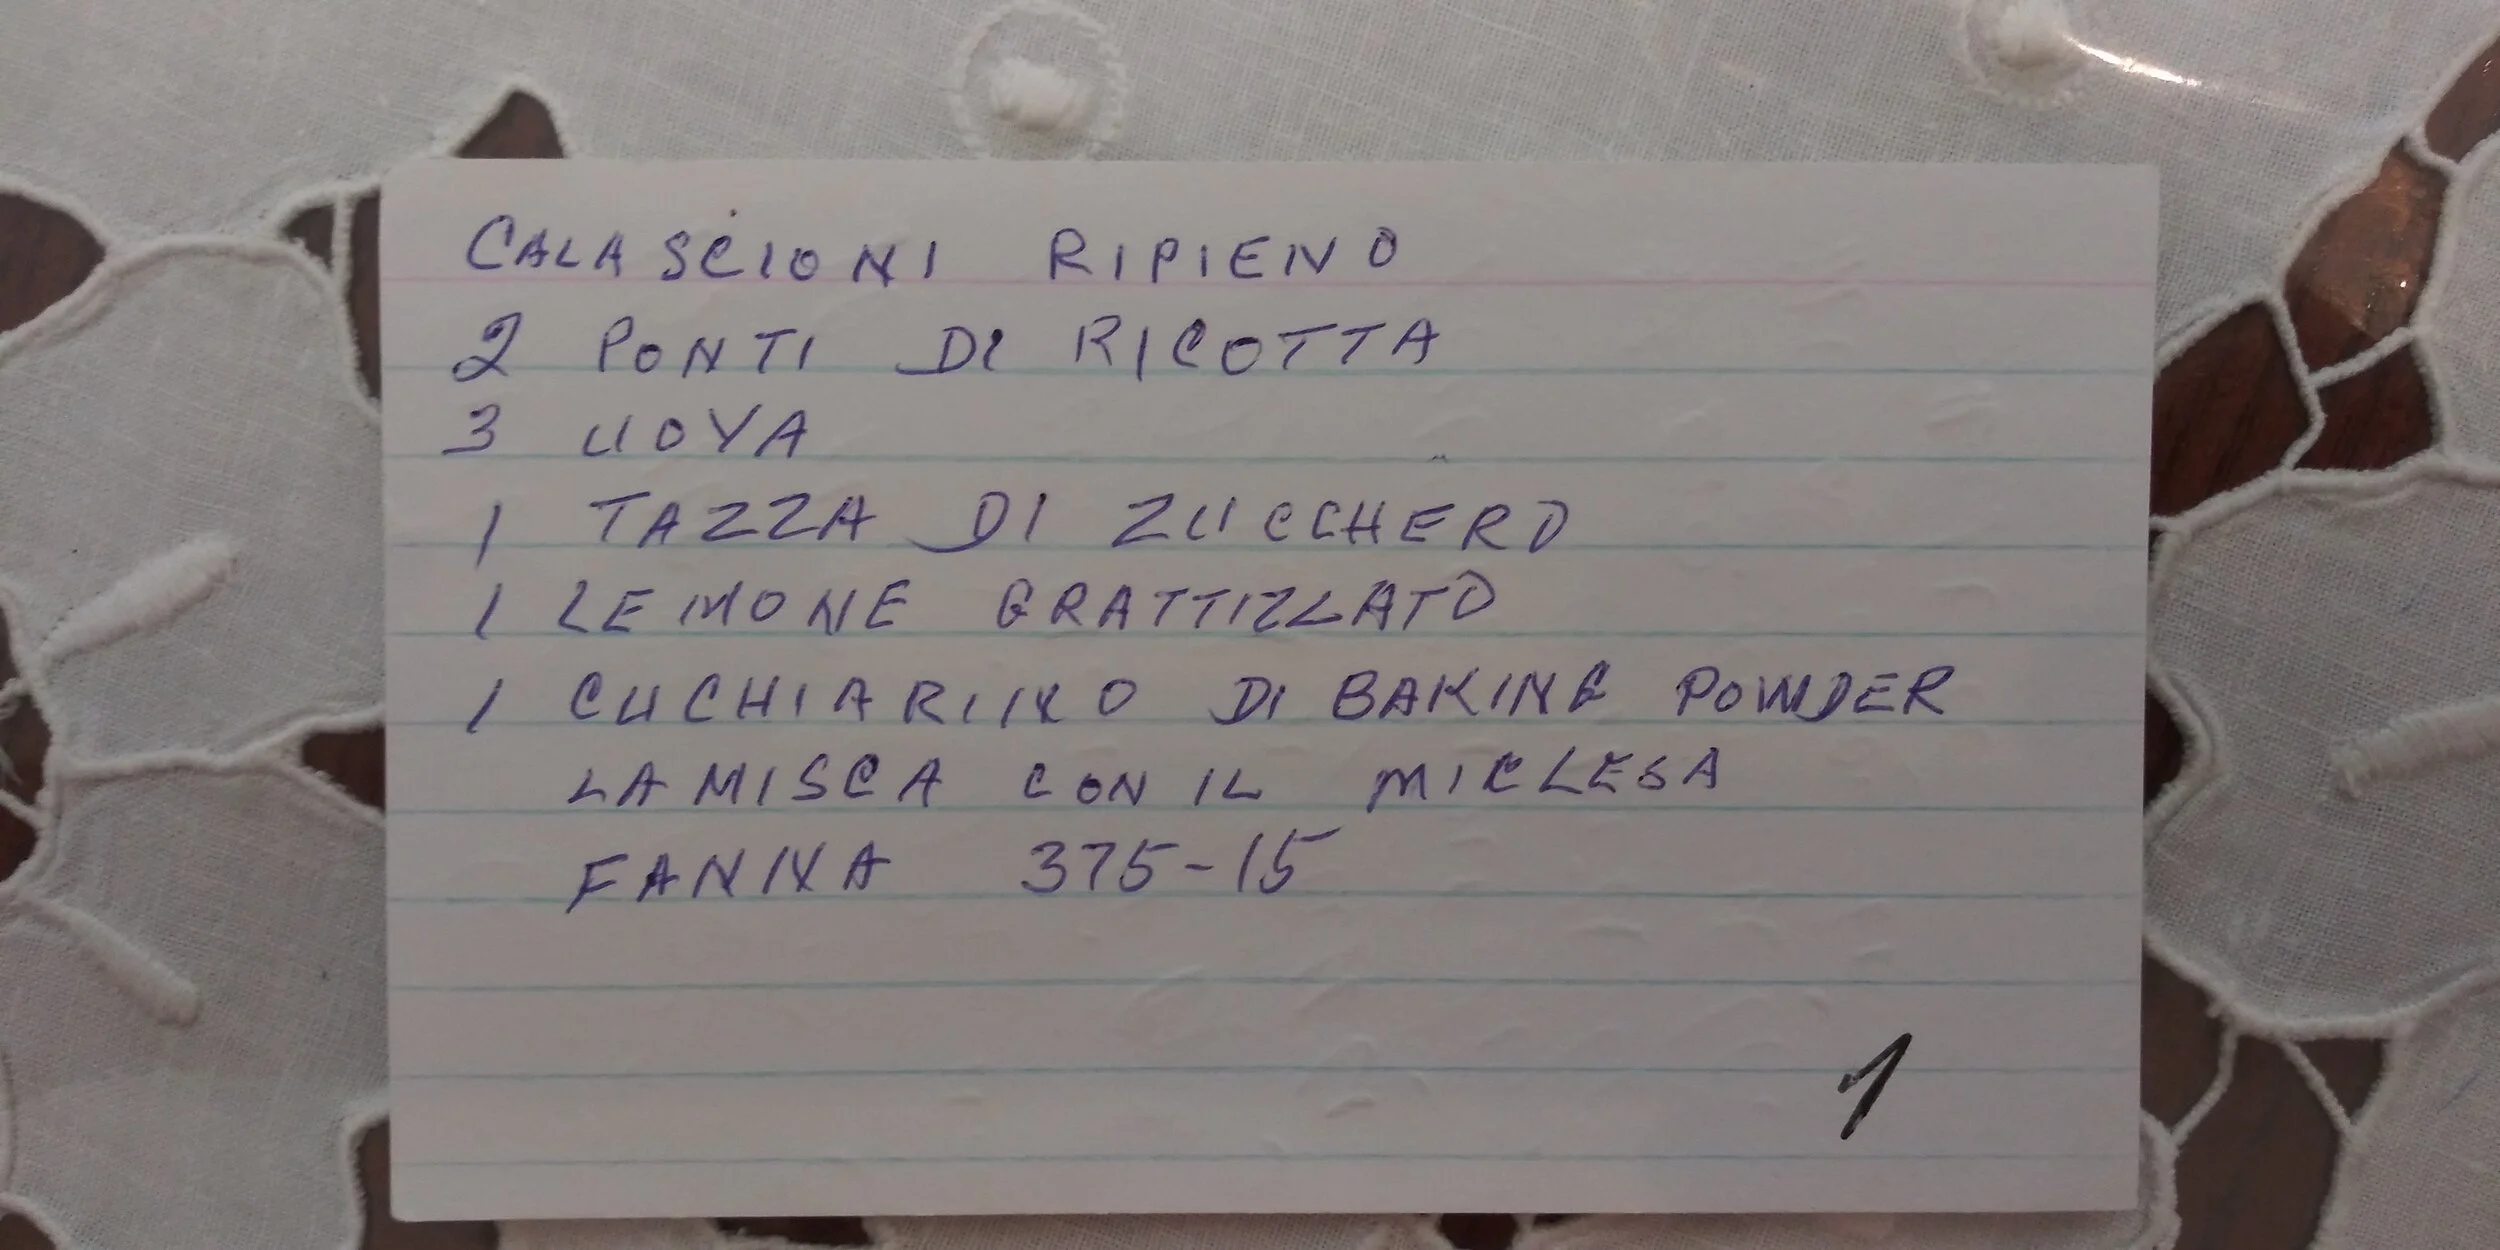 CALASCIONI RIPIENO
2 PONTI DI RICOTTA
3 UOVA
1 TAZZA DI ZUCCHERO
1 LEMONE GRATTIZLATO
1 CUCHIARINO DI BAKING POWDER
LA MISCA CON IL MICLESA
FANNA 375-15
1